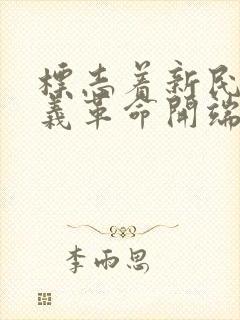 標志着新民
義革命開端
李雨思